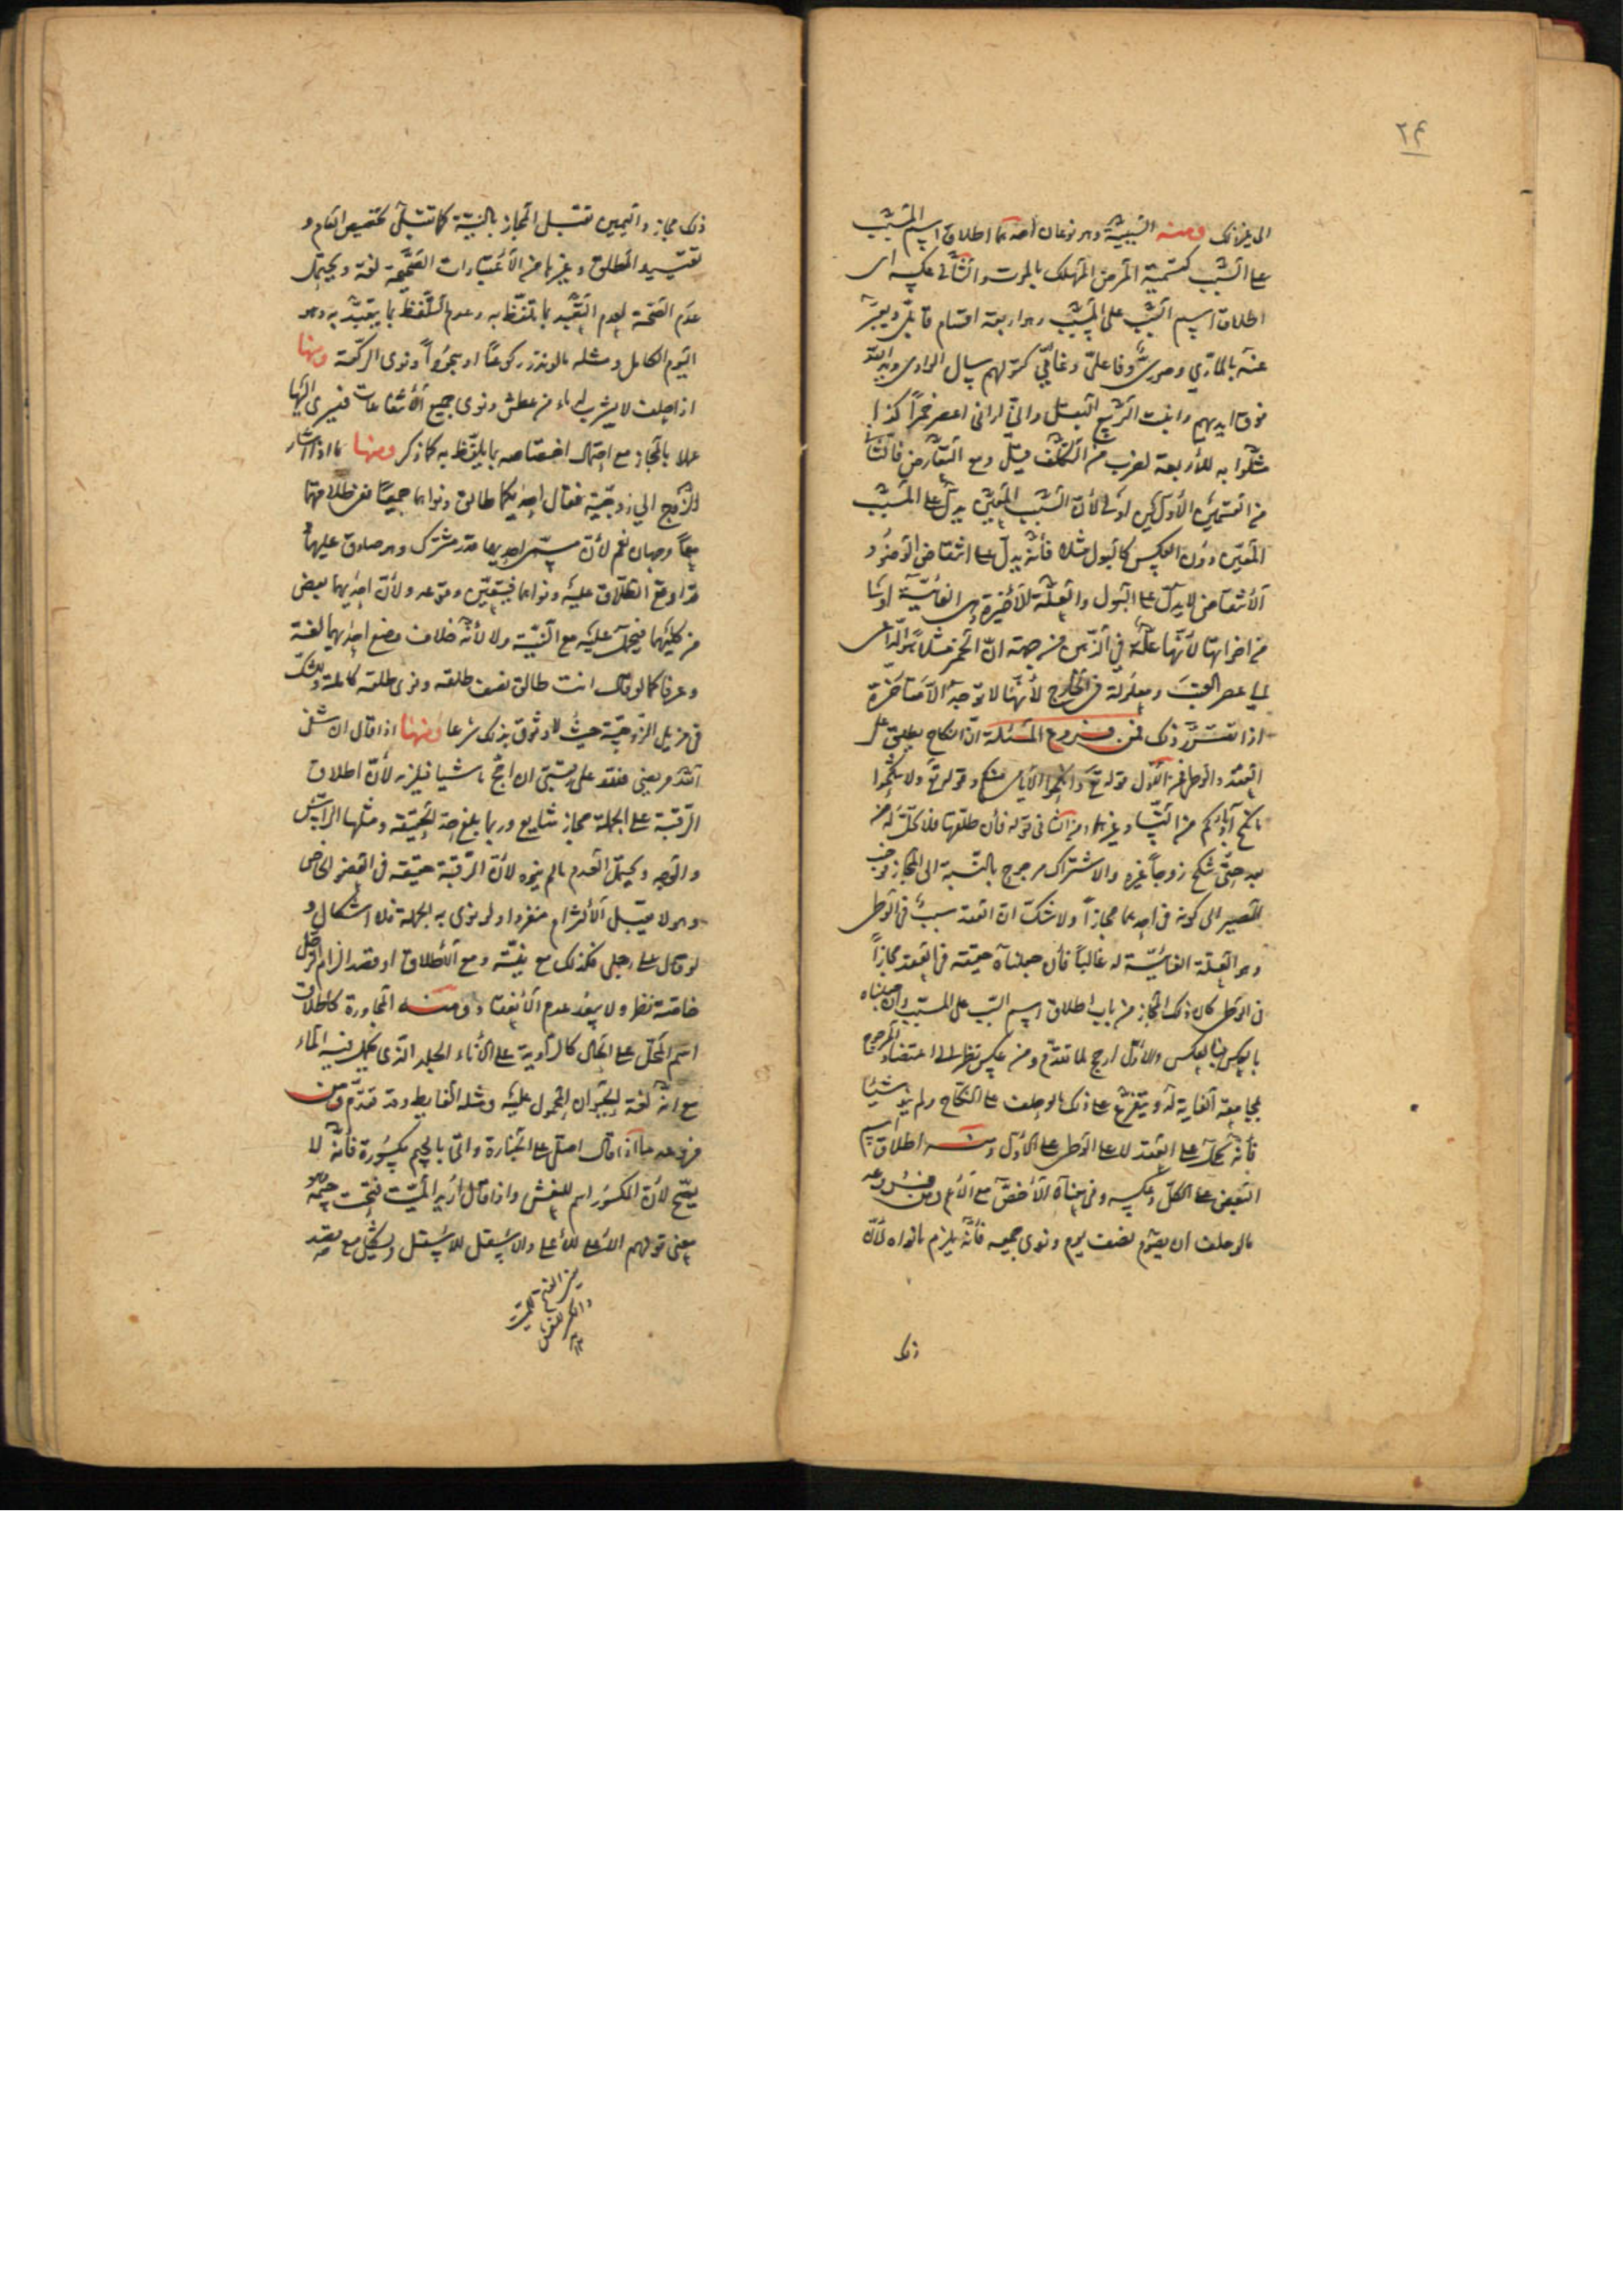 ٢۴
الى غير ذلك ومنه السببية وهو نوعان احدهما اطلاق اسم المسبب
على السبب كتسمية المرض المهلك بالموت والثانى عكسه اى
اطلاق اسم السبب على المسبب وهو اربعة اقسام قابلى ويعبر
عنه بالمادي وصورى وفاعلى وغائى كقولهم سال الوادى ويد الله
فوق ايديهم وانبت الربيع البقل وانى ارانى اعصر خمرا كذا
مثلوا به للأربعة لضرب من التكلف قيل ومع التعارض فالثانى
من القسمين الأول اولى لأن السبب المعين يدل على المسبب
المعين دون العكس كالبول مثلا فأنه يدل على انتقاض الوضوء و
الأنتقاض لا يدل على البول والعلة الأخيرة وهى الغائية اولى
من اخواتها لأنها علة في الذهن من جهة ان الخمر مثلا هو الداعى
الى عصر العنب ومعلولة في الخارج لأنها لا توجد الا متأخرة
اذا تقرر ذلك فمن فروع المسئلة ان النكاح يطلق على
العقد والوطى فمن الأول قوله تع وانكحوا الأيامى منكم وقوله تع ولا تنكحوا
ما نكح آباؤكم من النساء وغيرها ومن الثانى قوله فأن طلقها فلا تحل له من
بعد حتى تنكح زوجا غيره والاشتراك مرجوح بالنسبة الى المجاز فوجب
المصير الى كونه فى احدهما مجازا ولا شك ان العقد سبب فى الوطى
وهو العلة الغائية له غالبا فأن جعلناه حقيقة فى العقد مجازا
فى الوطى كان ذلك المجاز من باب اطلاق اسم السبب على المسبب وان جعلناه
بالعكس فبالعكس والأول ارجح لما تقدم ومن عكس نظر الى اعتضاد المرجوح
بمجامعة الغاية له ويتفرع على ذلك ما لو حلف على النكاح ولم ينو شيئا
فأنه يحمل على العقد لا على الوطى على الأول ومنه اطلاق اسم
البعض على الكل وعكسه وفى معناه الأخص مع الأعم ومن فروعه
ما لو حلف ان يصوم نصف يوم ونوى جميعه فأنه يلزم ما نواه لأن
ذلك
ذلك مجاز واليمين تقبل المجاز بالنية كما تقبل تخصيص العام و
تقييد المطلق وغيرها من الأعتبارات الصحيحة لغة ويحتمل
عدم الصحة لعدم التقيد بما تلفظ به وعدم التلفظ بما يتقيد به وهو
اليوم الكامل ومثله ما لو نذر ركوعا او سجودا ونوى الركعة ومنها
اذا حلف لا يشرب له ماء من عطش ونوى جميع الأنتفاعات فيسرى اليها
عملا بالمجاز مع احتمال اختصاصه بما يلفظ به كما ذكر ومنها ما اذا اشار
الزوج الى زوجتيه فقال احديكما طالق ونواهما جميعا ففى طلاقهما
معا وجهان نعم لأن مسمى احديهما قدر مشترك وهو صادق عليهما
قد اوقع الطلاق عليه ونواهما فيتعين وقوعه ولأن احديهما بعض
من كليهما فيحمل عليه مع النية ولا لأنه خلاف وضع احديهما لغة
وعرفا كما لو قال انت طالق نصف طلقة ونوى طلقة كاملة وللشك
فى مزيل الزوجية حيث لا وثوق بذلك شرعا ومنها اذا قال ان شفى
الله مريضى فلله على رقبتى ان احج ماشيا فيلزمه لأن اطلاق
الرقبة على الجملة مجاز شايع وربما بلغ حد الحقيقة ومثلها الرأس
والوجه ويحتمل العدم ما لم ينوه لأن الرقبة حقيقة فى العضو الخاص
وهو لا يقبل الألتزام منفردا ولو نوى به الجملة فلا اشكال و
لو قال على رجلى فكذلك مع نيته ومع الأطلاق او قصد الزام الرجل
خاصة نظر ولا يبعد عدم الأنعقاد ومنه المجاورة كاطلاق
اسم المحل على الحال كالراوية على الأناء الجلد الذى يحمل فيه الماء
مع انه لغة للحيوان المحمول عليه ومثله الغايط وقد تقدم ومن
فروعه ما اذا قال اصلى على الجنازة واتى بالجيم مكسورة فأنه لا
يصح لأن المكسور اسم للنعش واذا قال اريد الميت فتحت جيمه وهو
معنى قولهم الأعلى للأعلى والاسفل للاسفل ويشكل مع قصد